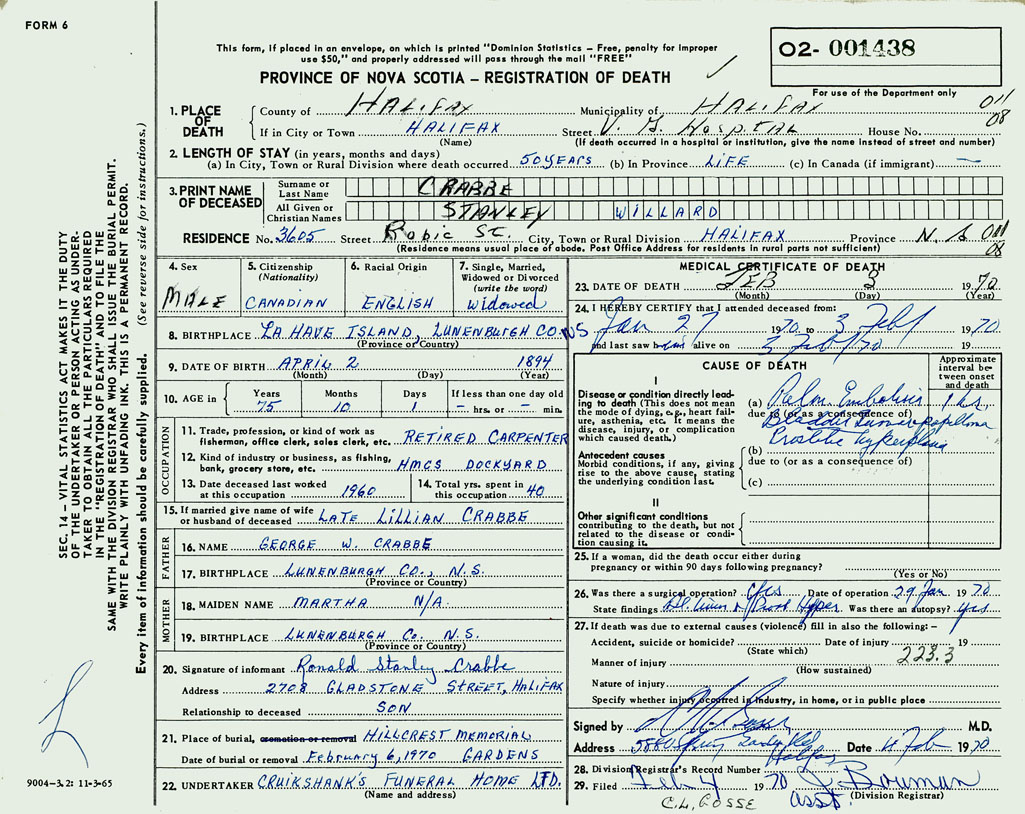 FORM 6
This form, if placed in an envelope, on which is printed "Dominion Statistics – Free, penalty for improper
use $50," and properly addressed will pass through the mail "FREE"
PROVINCE OF NOVA SCOTIA – REGISTRATION OF DEATH
O2- 001438
For use of the Department only
1. PLACE OF DEATH
County of HALIFAX Municipality of HALIFAX 011 08
If in City or Town HALIFAX Street V. G. HOSPITAL House No.
(Name) (If death occurred in a hospital or institution, give the name instead of street and number)
2. LENGTH OF STAY (in years, months and days)
(a) In City, Town or Rural Division where death occurred 50 YEARS (b) In Province LIFE (c) In Canada (if immigrant) —
3. PRINT NAME OF DECEASED
Surname or Last Name CRABBE
All Given or Christian Names STANLEY WILLARD
RESIDENCE No. 3605 Street Robie St. City, Town or Rural Division HALIFAX Province N.S 011 08
(Residence means usual place of abode. Post Office Address for residents in rural parts not sufficient)
4. Sex MALE
5. Citizenship (Nationality) CANADIAN
6. Racial Origin ENGLISH
7. Single, Married, Widowed or Divorced (write the word) Widowed
8. BIRTHPLACE LA HAVE ISLAND, LUNENBURGH CO. NS
(Province or Country)
9. DATE OF BIRTH APRIL 2 1894
(Month) (Day) (Year)
10. AGE in Years 75 Months 10 Days 1 If less than one day old – hrs. or – min.
OCCUPATION
11. Trade, profession, or kind of work as fisherman, office clerk, sales clerk, etc. RETIRED CARPENTER
12. Kind of industry or business, as fishing, bank, grocery store, etc. HMCS DOCKYARD
13. Date deceased last worked at this occupation 1960
14. Total yrs. spent in this occupation 40
15. If married give name of wife or husband of deceased LATE LILLIAN CRABBE
FATHER
16. NAME GEORGE W. CRABBE
17. BIRTHPLACE LUNENBURGH CO., N.S.
(Province or Country)
MOTHER
18. MAIDEN NAME MARTHA N/A.
19. BIRTHPLACE LUNENBURGH CO. N.S.
(Province or Country)
20. Signature of informant Ronald Stanley Crabbe
Address 2708 GLADSTONE STREET, HALIFAX
Relationship to deceased SON
21. Place of burial, cremation or removal HILLCREST MEMORIAL
Date of burial or removal February 6, 1970 GARDENS
22. UNDERTAKER CRUIKSHANK'S FUNERAL HOME LTD.
(Name and address)
MEDICAL CERTIFICATE OF DEATH
23. DATE OF DEATH FEB 3 1970
(Month) (Day) (Year)
24. I HEREBY CERTIFY that I attended deceased from:
Jan 27 1970 to 3 Feb 1970
and last saw him alive on 3 Feb/70 19
CAUSE OF DEATH
Approximate interval between onset and death
I
Disease or condition directly leading to death (This does not mean the mode of dying, e.g., heart failure, asthenia, etc. It means the disease, injury, or complication which caused death.)
(a) Pulm Embolism 1 hr.
due to (or as a consequence of)
Bladder Tumor papilloma
Prostatic hyperplasia
Antecedent causes
Morbid conditions, if any, giving rise to the above cause, stating the underlying condition last.
(b)
due to (or as a consequence of)
(c)
II
Other significant conditions contributing to the death, but not related to the disease or condition causing it.
25. If a woman, did the death occur either during pregnancy or within 90 days following pregnancy?
(Yes or No)
26. Was there a surgical operation? Yes Date of operation 29 Jan 1970
State findings Bl. Tumor & Prost Hyper. Was there an autopsy? yes
27. If death was due to external causes (violence) fill in also the following: –
Accident, suicide or homicide? Date of injury 19
(State which) 223.3
Manner of injury
(How sustained)
Nature of injury
Specify whether injury occurred in industry, in home, or in public place
Signed by M.D.
Address 5880 Spring Garden Rd Halifax Date 4 Feb 1970
28. Division Registrar's Record Number
29. Filed Feb 4 1970 Bowman
C.L. GOSSE asst. (Division Registrar)
SEC. 14 – VITAL STATISTICS ACT MAKES IT THE DUTY
OF THE UNDERTAKER OR PERSON ACTING AS UNDER-
TAKER TO OBTAIN ALL THE PARTICULARS REQUIRED
IN THE "REGISTRATION OF DEATH" AND TO FILE THE
SAME WITH THE DIVISION REGISTRAR WHO SHALL ISSUE THE BURIAL PERMIT.
WRITE PLAINLY WITH UNFADING INK. THIS IS A PERMANENT RECORD.
Every item of information should be carefully supplied. (See reverse side for instructions.)
9004-3.2: 11-3-65